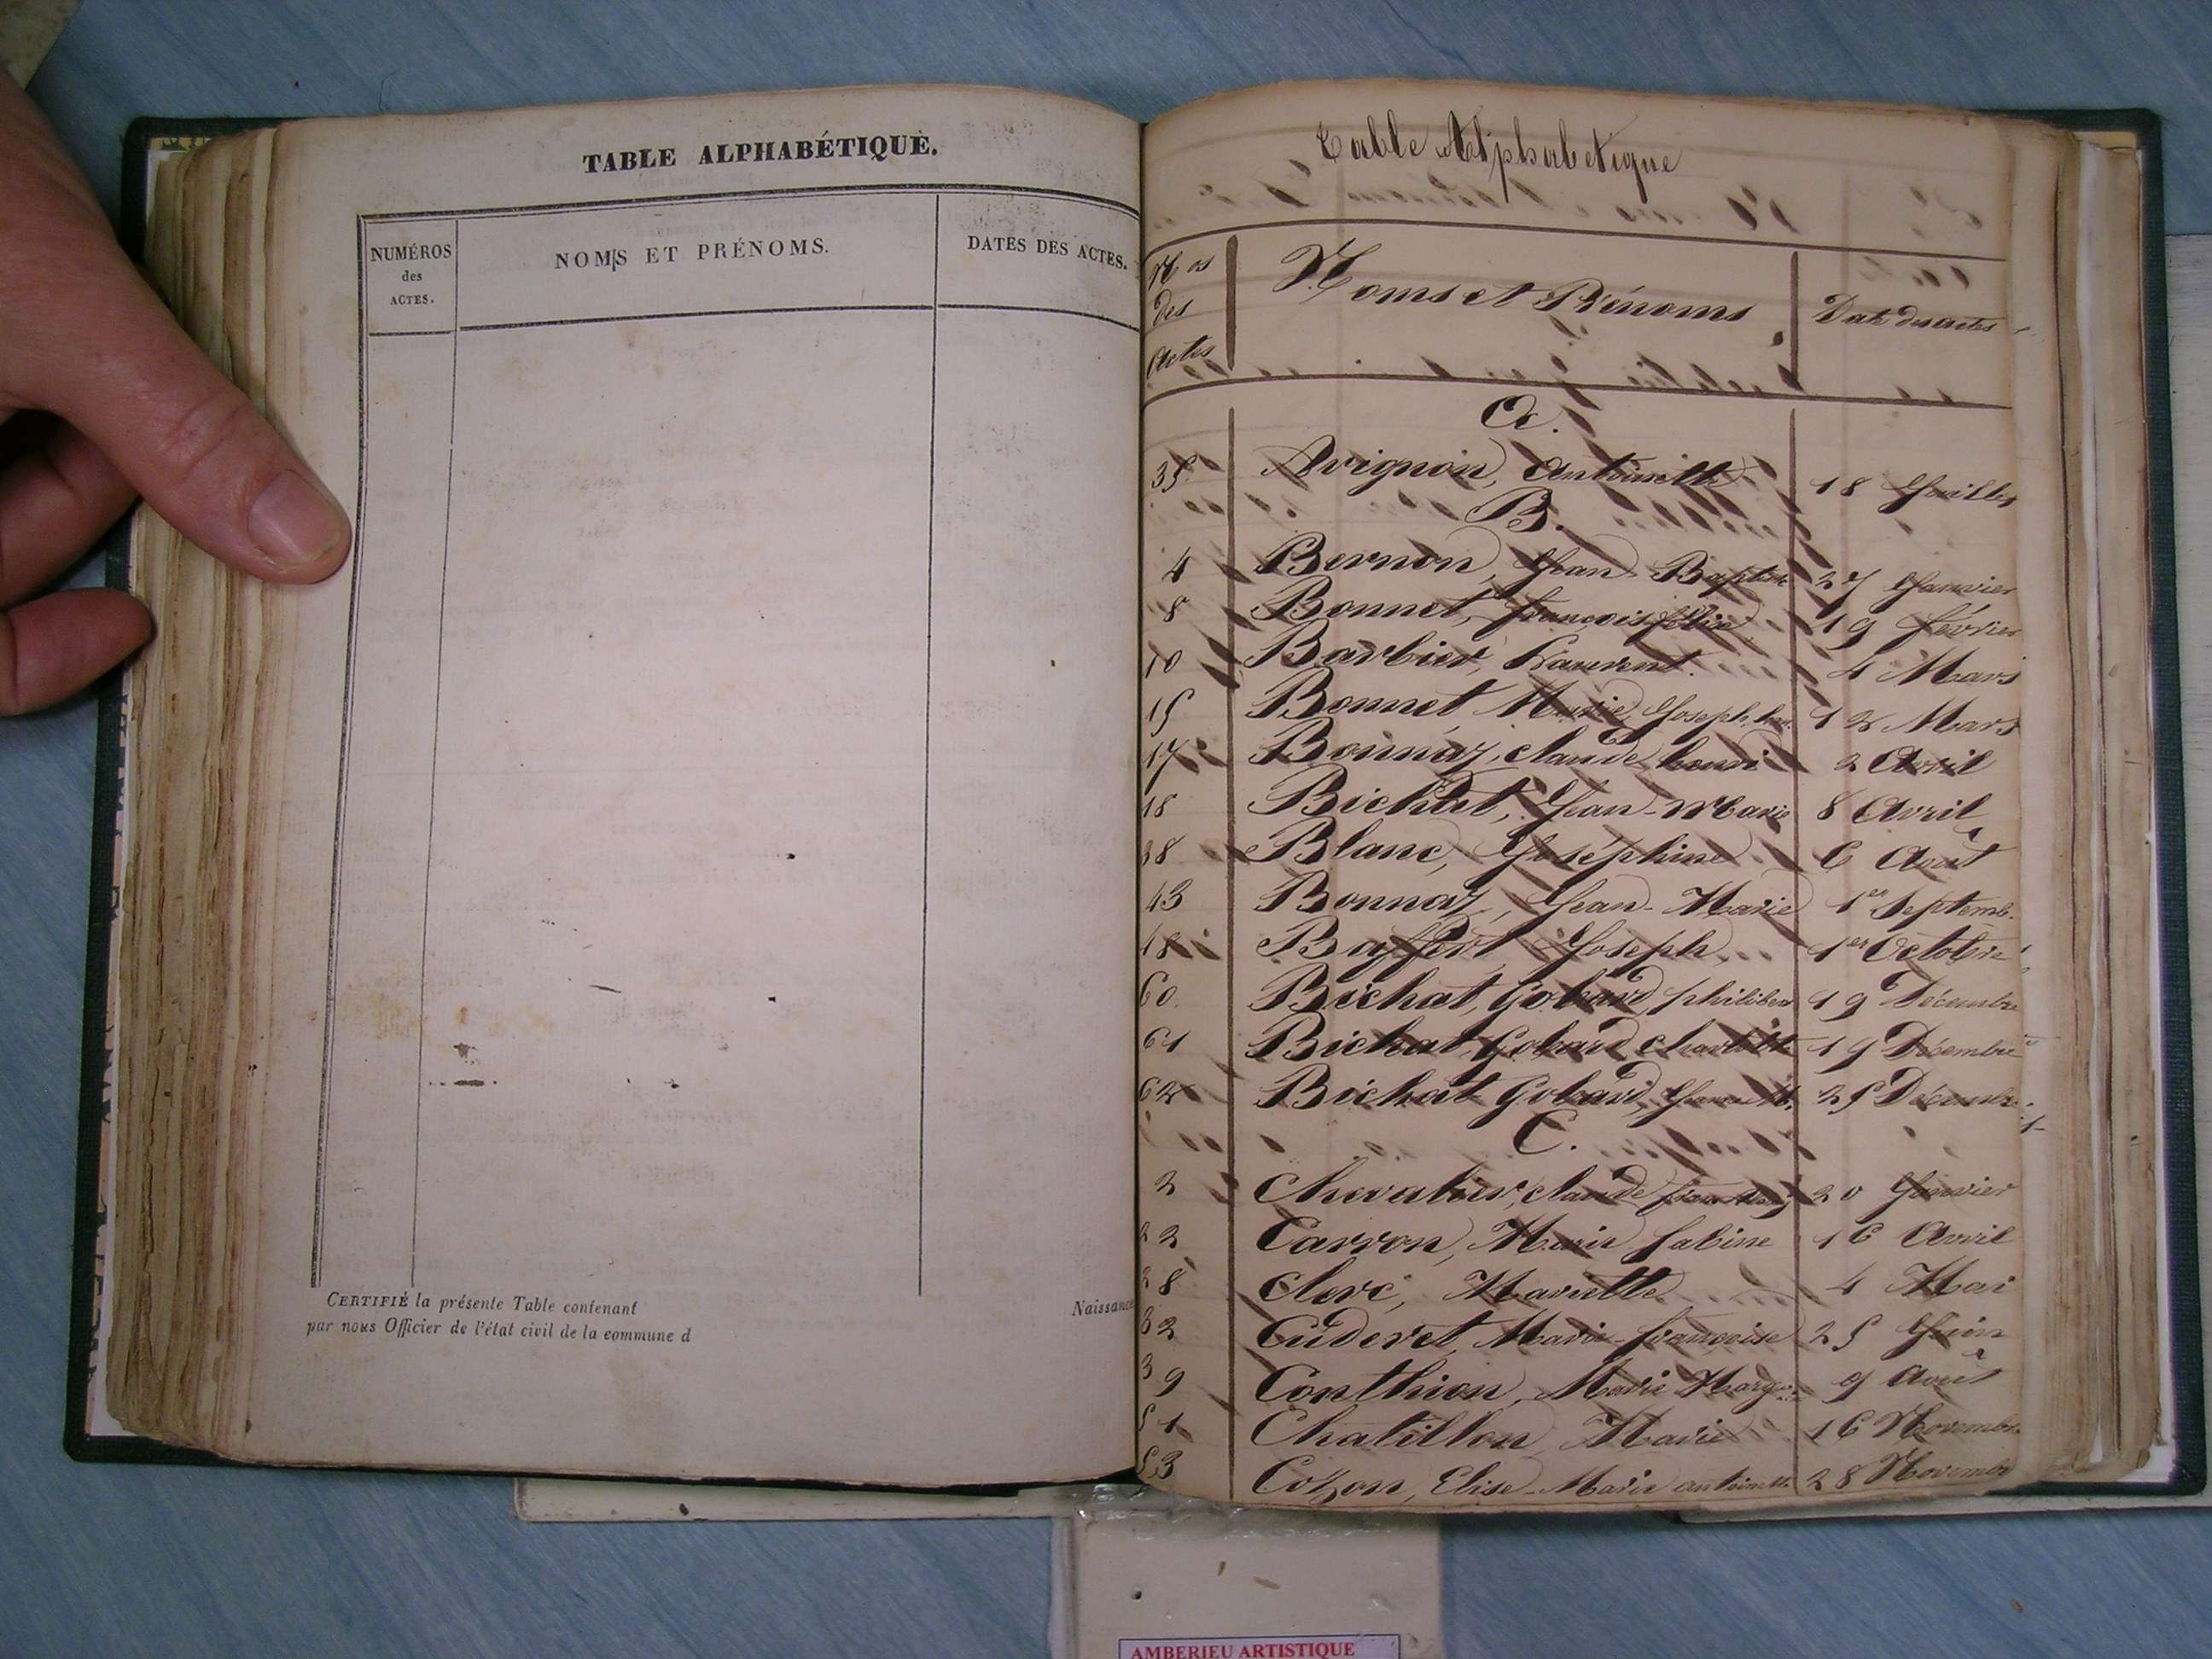 TABLE ALPHABÉTIQUE.
NUMÉROS des ACTES.
NOMS ET PRÉNOMS.
DATES DES ACTES.
CERTIFIÉ la présente Table contenant Naissance
par nous Officier de l'état civil de la commune d
Table Alphabetique
Nos des Actes
Noms et Prénoms
Date des actes
A.
35 Avignon, Antoinette 18 Juillet
B.
4 Bernon, Jean-Baptiste 27 Janvier
8 Bonnet, françois félix 19 février
10 Barbier, Laurent. 4 Mars
15 Bonnet Marie, Joseph 12 Mars
17 Bonnaz, claude henri 2 Avril
18 Bichat, Jean-Marie 8 Avril
38 Blanc, Joséphine 6 Août
43 Bonnaz, Jean-Marie 1er Septemb.
48 Buffert Joseph 1er Octobre
60. Bichat, Gobard, philibert 19 Décembre
61 Bichat, Gobard Charlotte 19 Décembre
62 Bichat Gobard, 25 Décembre
C.
2 Chevalier, claude 20 Janvier
22 Carron, Marie Sabine 16 Avril
28 Clerc, Mariette 4 Mai
32 Cuderet, Marie-françoise 25 Juin
39 Conthion, Marie Marg. 9 Août
51 Chatillon Marie 16 Novembre
53 Cozon, Elise-Marie antoinette 28 Novembre
AMBERIEU ARTISTIQUE